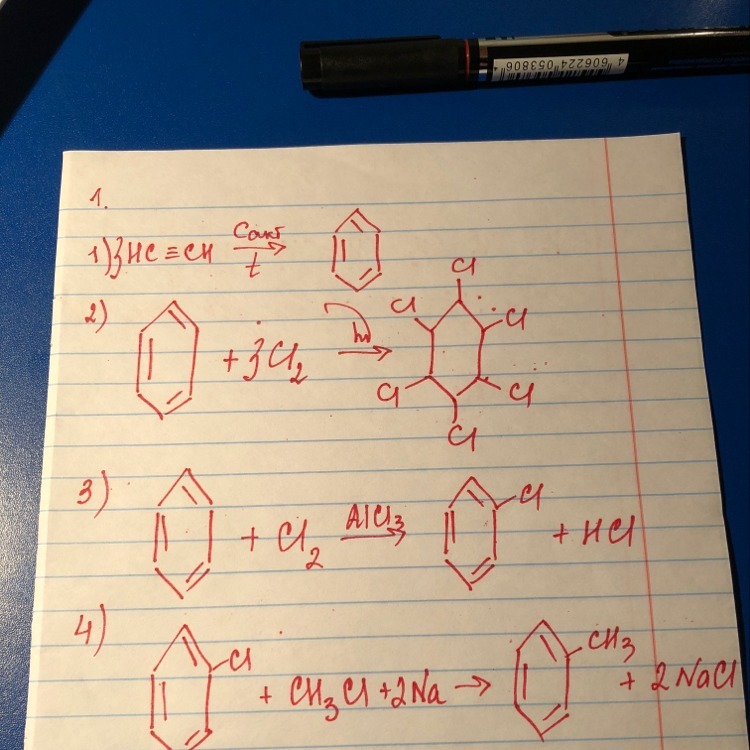 4606224 053806
1.
1) 3HC≡CH Cакт t
Cl
2) + 3Cl₂ hν Cl Cl
Cl Cl
Cl
3) + Cl₂ AlCl₃ Cl + HCl
4) Cl + CH₃Cl + 2Na → CH₃ + 2NaCl